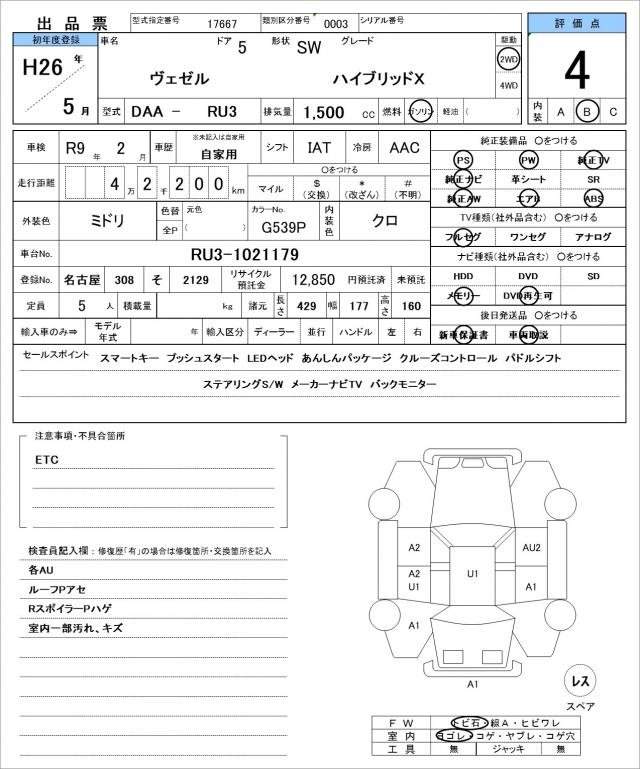 出品票 型式指定番号 17667 類別区分番号 0003 シリアル番号
初年度登録 車名 ドア 5 形状 SW グレード 駆動 評価点
H26 年 ヴェゼル ハイブリッドX 2WD 4
5 月 4WD
型式 DAA － RU3 排気量 1,500 cc 燃料 ガソリン 軽油 ( ) 内装 A B C
車検 R9 年 2 月 車歴 ※未記入は自家用 自家用 シフト IAT 冷房 AAC 純正装備品 〇をつける
走行距離 4 万 2 千 2 0 0 km 〇をつける マイル $ (交換) * (改ざん) # (不明) PS PW 純正TV
純正ナビ 革シート SR
外装色 ミドリ 色替 元色 全P ( ) カラーNo. G539P 内装色 クロ 純正AW エアB ABS
TV種類(社外品含む) 〇をつける
フルセグ ワンセグ アナログ
車台No. RU3-1021179 ナビ種類(社外品含む) 〇をつける
登録No. 名古屋 308 そ 2129 リサイクル預託金 12,850 円預託済 未預託 HDD DVD SD
定員 5 人 積載量 kg 諸元 長さ 429 幅 177 高さ 160 メモリー DVD再生可
後日発送品 〇をつける
輸入車のみ⇒ モデル年式 年 輸入区分 ディーラー 並行 ハンドル 左 右 新車保証書 車両取説
セールスポイント スマートキー プッシュスタート LEDヘッド あんしんパッケージ クルーズコントロール パドルシフト
ステアリングS/W メーカーナビTV バックモニター
注意事項・不具合箇所
ETC
検査員記入欄：修復歴「有」の場合は修復箇所・交換箇所を記入
各AU
ルーフPアセ
RスポイラーPハゲ
室内一部汚れ、キズ
A2 AU2
A2 U1 U1 A1
A1
A1
レス
スペア
FW トビ石・線A・ヒビワレ
室内 ヨゴレ・コゲ・ヤブレ・コゲ穴
工具 無 ジャッキ 無